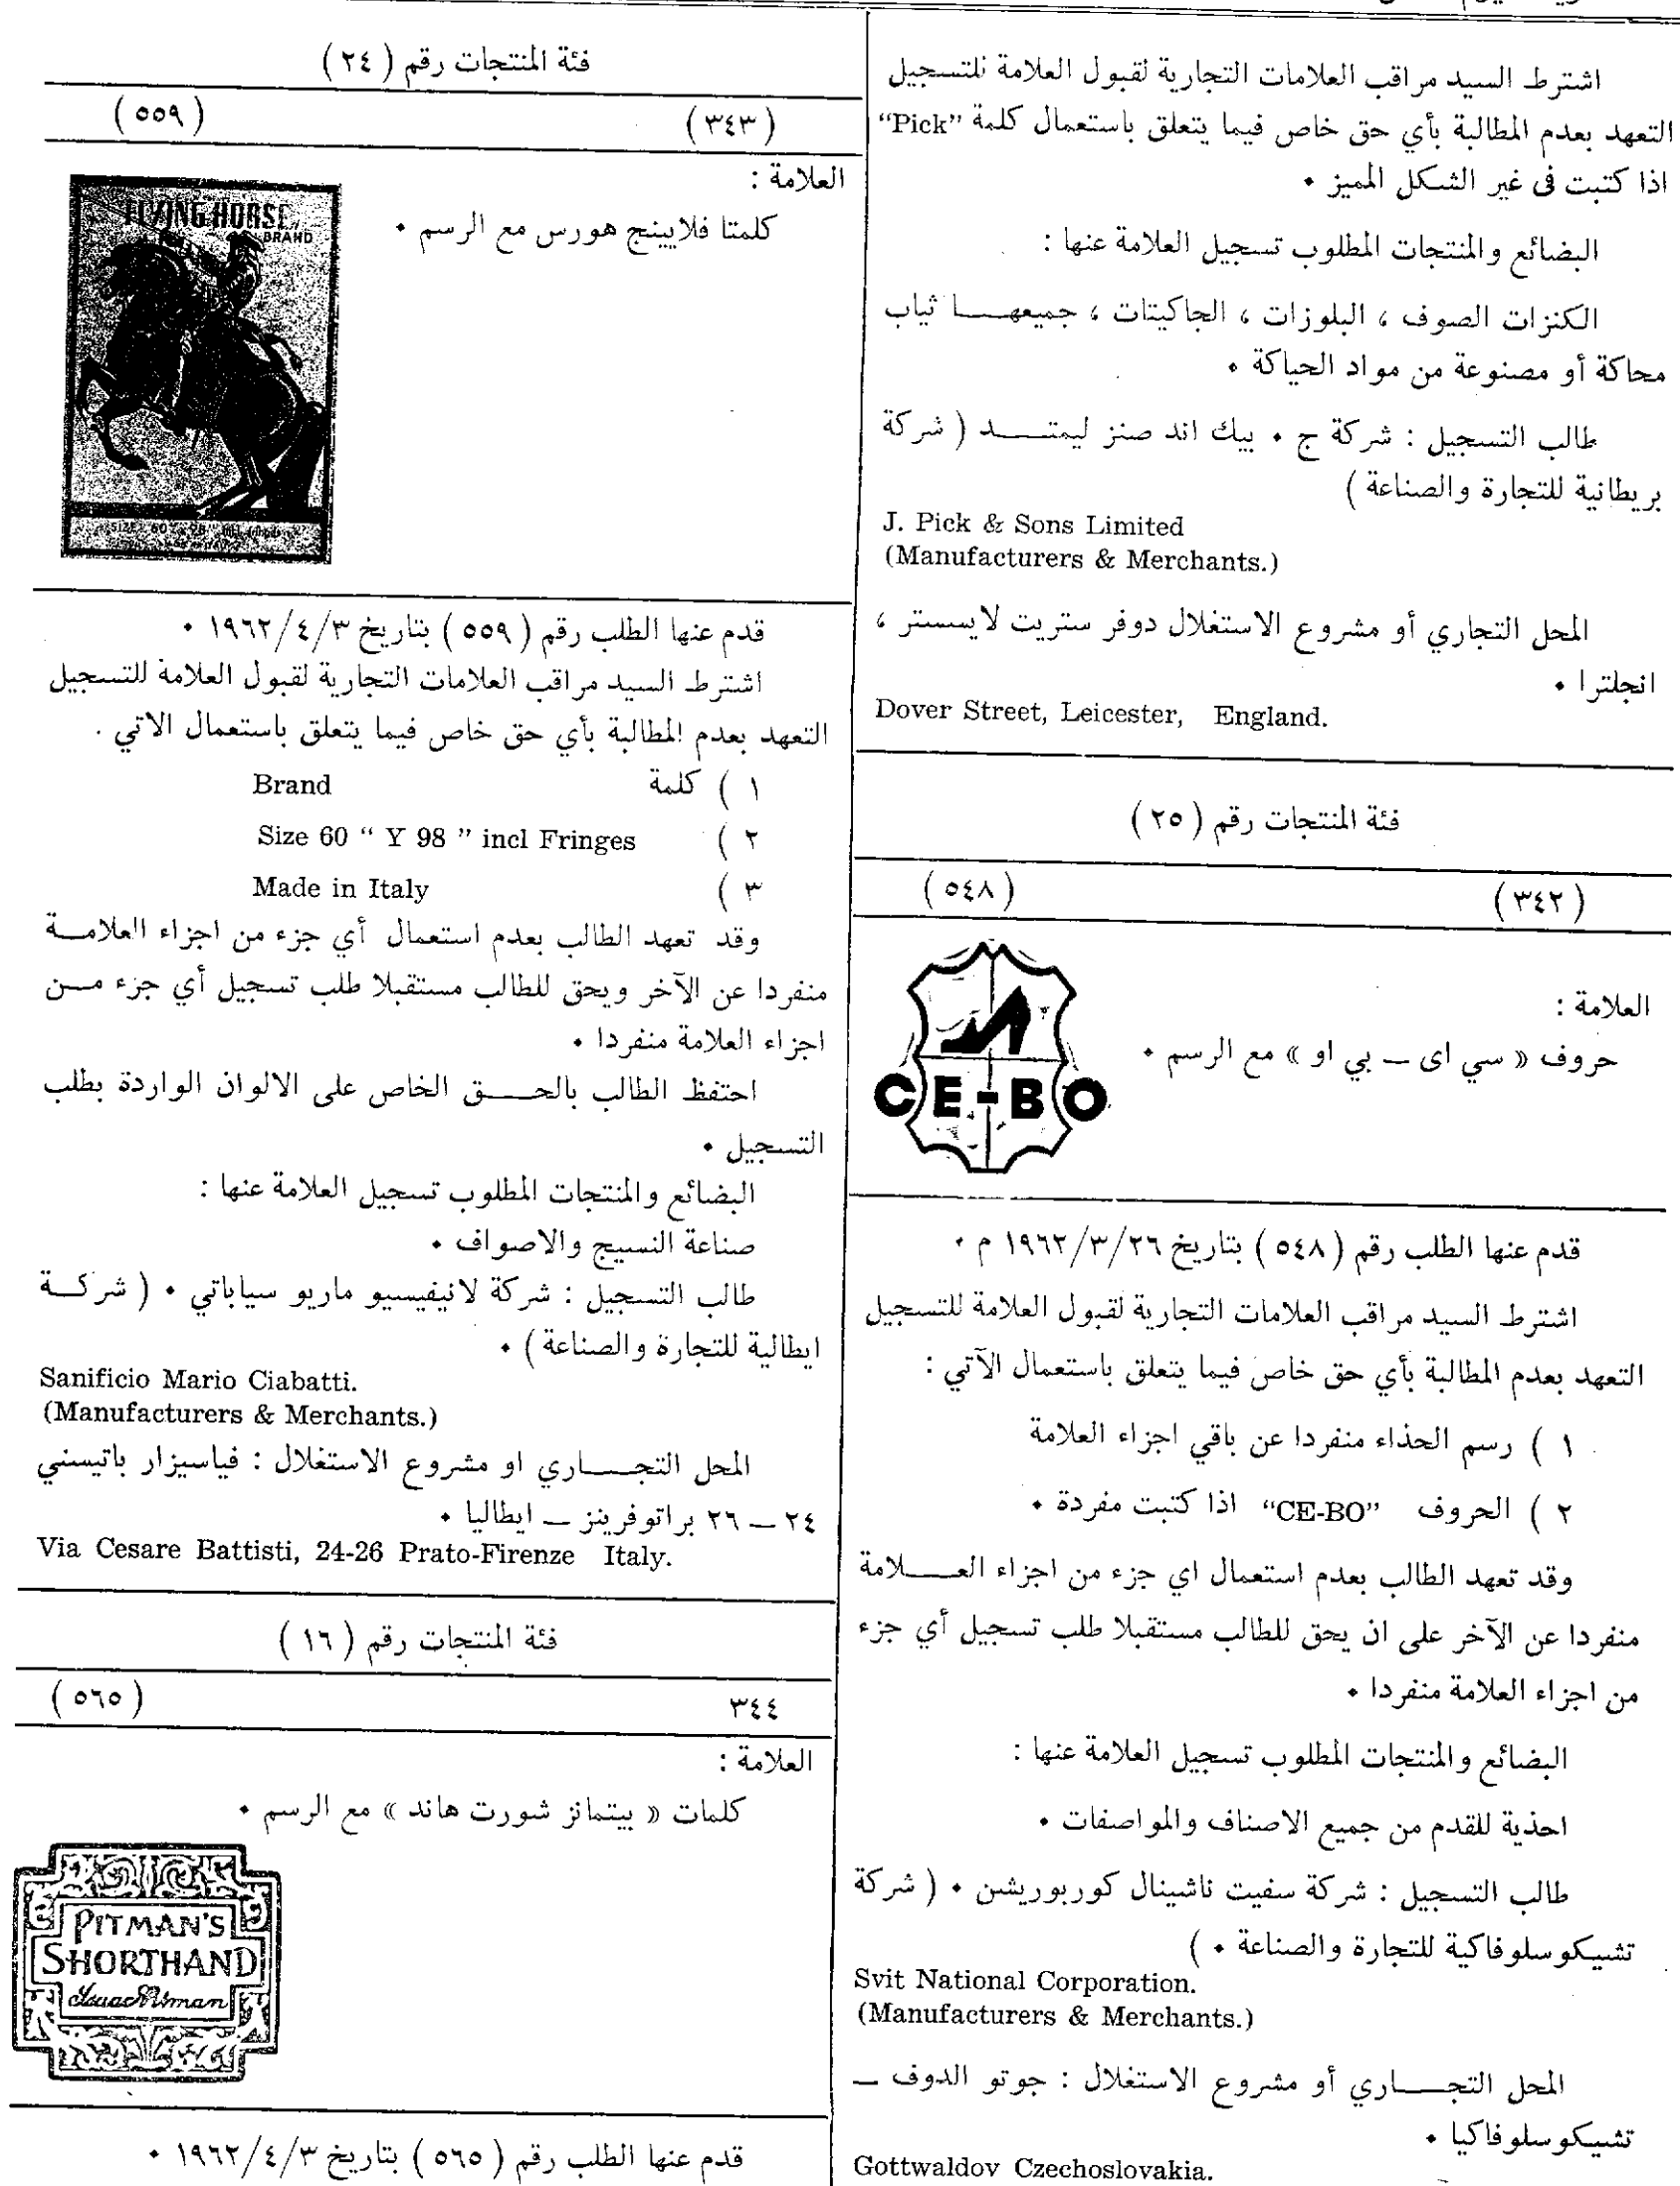 اشترط السيد مراقب العلامات التجارية لقبول العلامة للتسجيل
التعهد بعدم المطالبة بأي حق خاص فيما يتعلق باستعمال كلمة “Pick”
اذا كتبت في غير الشكل المميز .
البضائع والمنتجات المطلوب تسجيل العلامة عنها :
الكنزات الصوف ، البلوزات ، الجاكيتات ، جميعها ثياب
محاكة أو مصنوعة من مواد الحياكة .
طالب التسجيل : شركة ج . بيك اند صنز ليمتد ( شركة
بريطانية للتجارة والصناعة )
J. Pick & Sons Limited
(Manufacturers & Merchants.)
المحل التجاري أو مشروع الاستغلال دوفر ستريت لايسستر ،
انجلترا .
Dover Street, Leicester, England.
فئة المنتجات رقم ( ٢٥ )
( ٣٤٢ ) ( ٥٤٨ )
العلامة :
حروف « سي اى — بي او » مع الرسم .
CE-BO
قدم عنها الطلب رقم ( ٥٤٨ ) بتاريخ ١٩٦٢/٣/٢٦ م .
اشترط السيد مراقب العلامات التجارية لقبول العلامة للتسجيل
التعهد بعدم المطالبة بأي حق خاص فيما يتعلق باستعمال الآتي :
١ ) رسم الحذاء منفردا عن باقي اجزاء العلامة
٢ ) الحروف “CE-BO” اذا كتبت مفردة .
وقد تعهد الطالب بعدم استعمال اي جزء من اجزاء العلامة
منفردا عن الآخر على ان يحق للطالب مستقبلا طلب تسجيل أي جزء
من اجزاء العلامة منفردا .
البضائع والمنتجات المطلوب تسجيل العلامة عنها :
احذية للقدم من جميع الاصناف والمواصفات .
طالب التسجيل : شركة سفيت ناشينال كوربوريشن . ( شركة
تشيكوسلوفاكية للتجارة والصناعة . )
Svit National Corporation.
(Manufacturers & Merchants.)
المحل التجاري أو مشروع الاستغلال : جوتو الدوف —
تشيكوسلوفاكيا .
Gottwaldov Czechoslovakia.
فئة المنتجات رقم ( ٢٤ )
( ٣٤٣ ) ( ٥٥٩ )
العلامة :
كلمتا فلايينج هورس مع الرسم .
FLYING HORSE
BRAND
SIZE 60 98 incl. fringes
قدم عنها الطلب رقم ( ٥٥٩ ) بتاريخ ١٩٦٢/٤/٣ .
اشترط السيد مراقب العلامات التجارية لقبول العلامة للتسجيل
التعهد بعدم المطالبة بأي حق خاص فيما يتعلق باستعمال الاتي .
١ ) كلمة Brand
٢ ) Size 60 “ Y 98 ” incl Fringes
٣ ) Made in Italy
وقد تعهد الطالب بعدم استعمال أي جزء من اجزاء العلامة
منفردا عن الآخر ويحق للطالب مستقبلا طلب تسجيل أي جزء من
اجزاء العلامة منفردا .
احتفظ الطالب بالحق الخاص على الالوان الواردة بطلب
التسجيل .
البضائع والمنتجات المطلوب تسجيل العلامة عنها :
صناعة النسيج والاصواف .
طالب التسجيل : شركة لانيفيسيو ماريو سياباتي . ( شركة
ايطالية للتجارة والصناعة ) .
Sanificio Mario Ciabatti.
(Manufacturers & Merchants.)
المحل التجاري او مشروع الاستغلال : فياسيزار باتيستي
٢٤ — ٢٦ براتوفرينز — ايطاليا .
Via Cesare Battisti, 24-26 Prato-Firenze Italy.
فئة المنتجات رقم ( ١٦ )
٣٤٤ ( ٥٦٥ )
العلامة :
كلمات « بيتمانز شورت هاند » مع الرسم .
PITMAN'S
SHORTHAND
Isaac Pitman
قدم عنها الطلب رقم ( ٥٦٥ ) بتاريخ ١٩٦٢/٤/٣ .